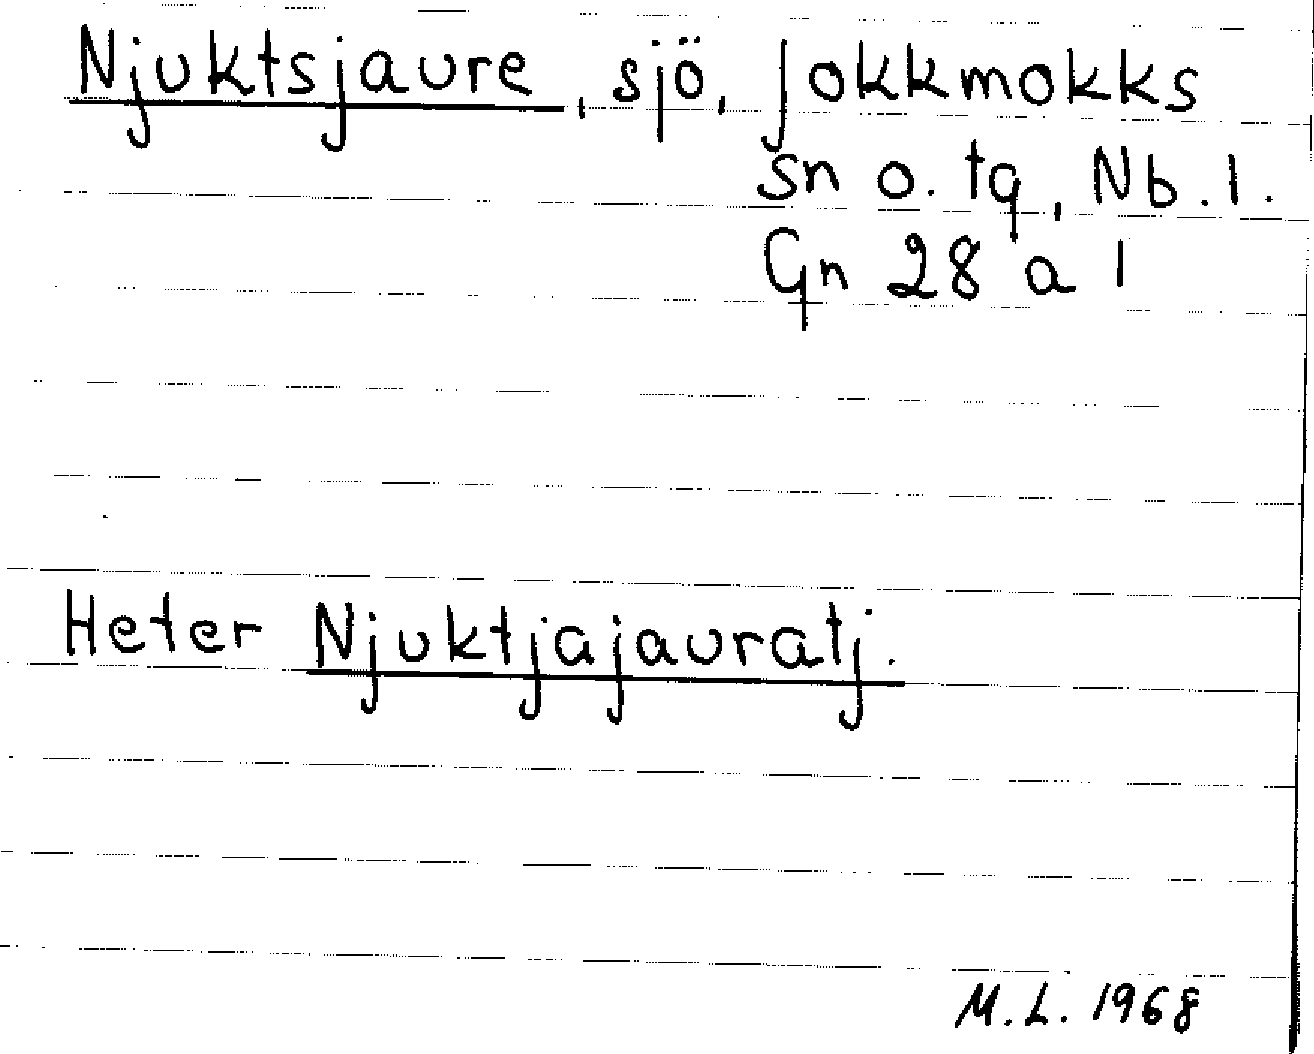 Njuktsjaure, sjö, Jokkmokks
sn o. tg, Nb. l.
Gn 28 a l
Heter Njuktjajauratj.
M.L. 1968